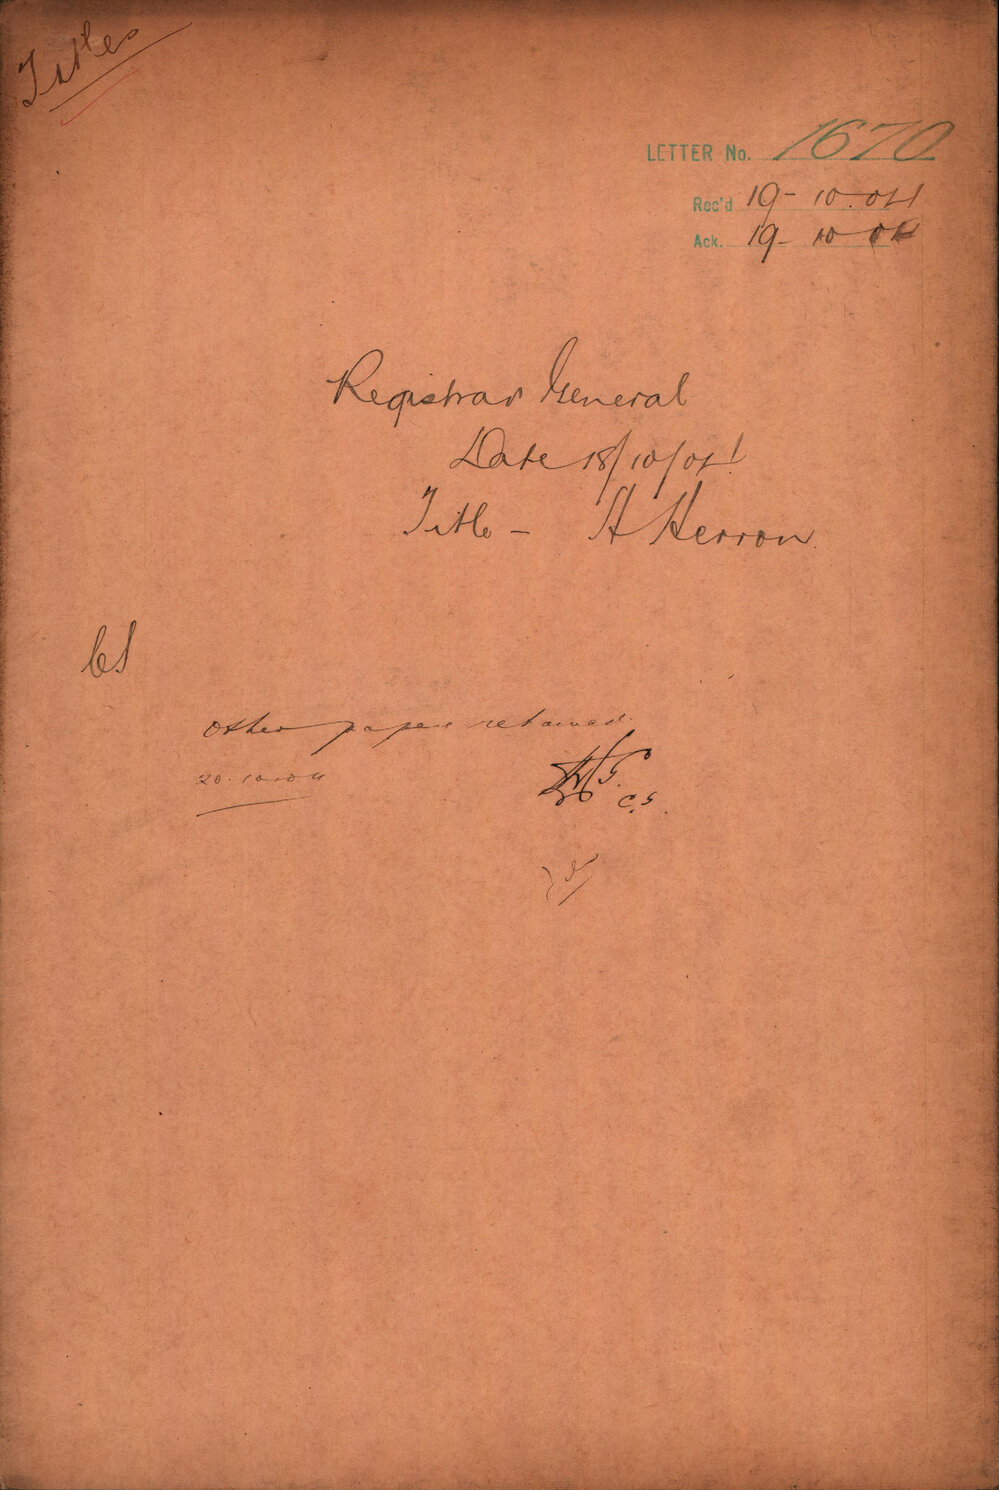 Titles
LETTER No. 1670
Rec'd 19-10.04
Ack. 19-10 04
Registrar General
Date 18/10/04
Title - A Herron
CS
Other papers retained
20.10.04
C.S.